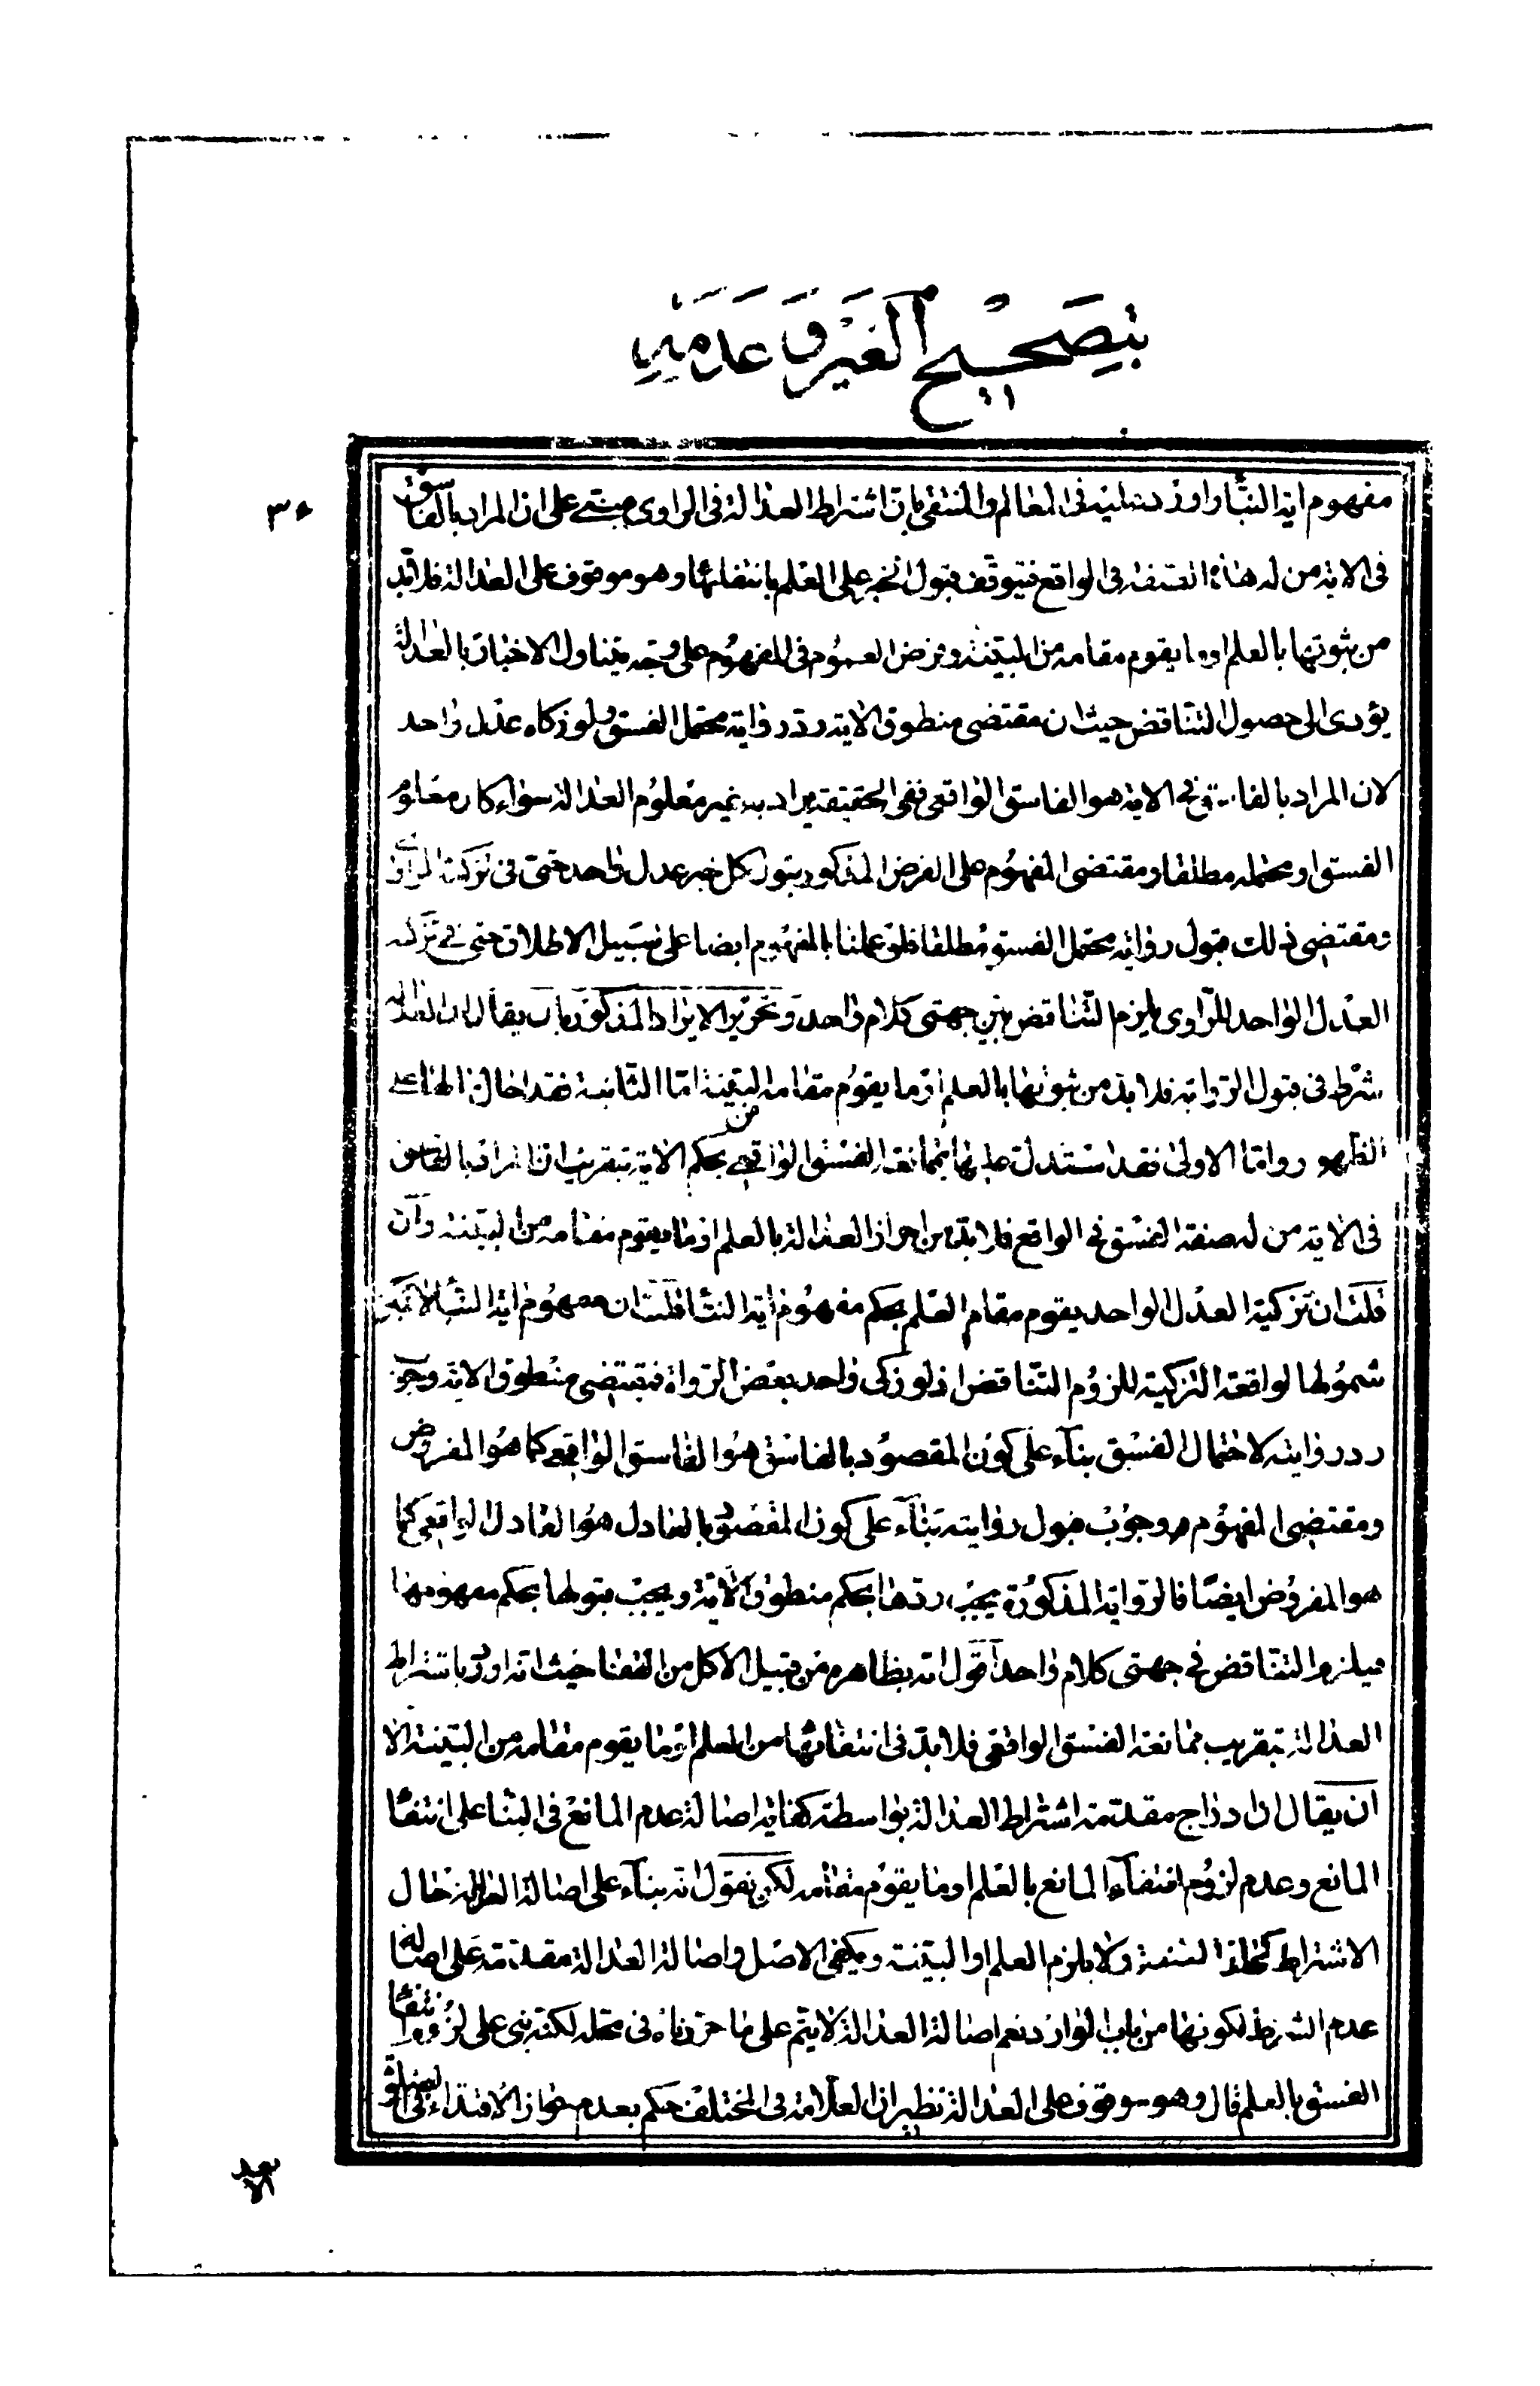 بتصحيح الغير و عدمه
٣٠
مفهوم اية النبأ و اورد عليه فى المعالم و المنتقى بان اشتراط العدالة فى الراوى مبتنى على ان المراد بالفاسق
فى الاية من له هذه الصفة فى الواقع فيتوقف قبول الخبر على العلم بانتفائها و هو موقوف على العدالة فلا بد
من ثبوتها بالعلم او ما يقوم مقامه من البينة و فرض العموم فى المفهوم على وجه يتناول الاخبار بالعدالة
يؤدى الى حصول التناقض حيث ان مقتضى منطوق الاية رد رواية محتمل الفسق و لو زكاه عدل واحد
لان المراد بالفاسق فى الاية هو الفاسق الواقعى ففى الحقيقة يراد به غير معلوم العدالة سواء كان معلوم
الفسق او محتمله مطلقا و مقتضى المفهوم على الفرض المذكور قبول كل خبر عدل واحد حتى فى تزكية الراوى
و مقتضى ذلك قبول رواية محتمل الفسق مطلقا فلو عملنا بالمفهوم ايضا على سبيل الاطلاق حتى فى تزكية
العدل الواحد للراوى يلزم التناقض بين جهتى كلام واحد و تحرير الايراد المذكور بان يقال ان العدالة
شرط فى قبول الرواية فلا بد من ثبوتها بالعلم او ما يقوم مقامه من البينة اما الثانية فقد احال الحال على
الظهور و اما الاولى فقد استدلت عليها بممانعة الفسق الواقعى بحكم الاية بتقريب ان المراد بالفاسق
فى الاية من له صفة الفسق فى الواقع فلا بد من احراز العدالة بالعلم او ما يقوم مقامه من البينة و ان
قلت ان تزكية العدل الواحد يقوم مقام العلم بحكم مفهوم اية النبأ قلت ان مفهوم اية النبأ لا يمكن
شمولها لواقعة التزكية للزوم التناقض اذ لو زكى واحد بعض الرواة فيقتضى منطوق الاية وجوب
رد روايته لاحتمال الفسق بناء على كون المقصود بالفاسق هو الفاسق الواقعى كما هو المفروض
و مقتضى المفهوم هو وجوب قبول روايته بناء على كون المقصود بالعادل هو العادل الواقعى كما
هو المفروض ايضا فالرواية المذكورة يجب ردها بحكم منطوق الاية و يجب قبولها بحكم مفهومها
فيلزم التناقض فى جهتى كلام واحد اقول انه بظاهره من قبيل الاكل من القفا حيث انه اورد باشتراط
العدالة بتقريب ممانعة الفسق الواقعى فلا بد فى انتفائها من العلم او ما يقوم مقامه من البينة الا
ان يقال ان ادراج مقدمة اشتراط العدالة بواسطة كفاية اصالة عدم المانع فى البناء على انتفاء
المانع و عدم لزوم انتفاء المانع بالعلم او ما يقوم مقامه لكن نقول انه بناء على اصالة العدالة حال
الاشتراط كحال الممانعة و لا يلزم العلم او البينة و يكفى الاصل و اصالة العدالة مقدمة على اصالة
عدم الشرط لكونها من باب الوارد نعم اصالة العدالة لا يتم على ما حررناه فى محله لكنه بنى على لزوم انتفاء
الفسق بالعلم قال و هو موقوف على العدالة نظير ان العلامة فى المختلف حكم بعدم جواز الاقتداء فى الصلوة
بعد
الا